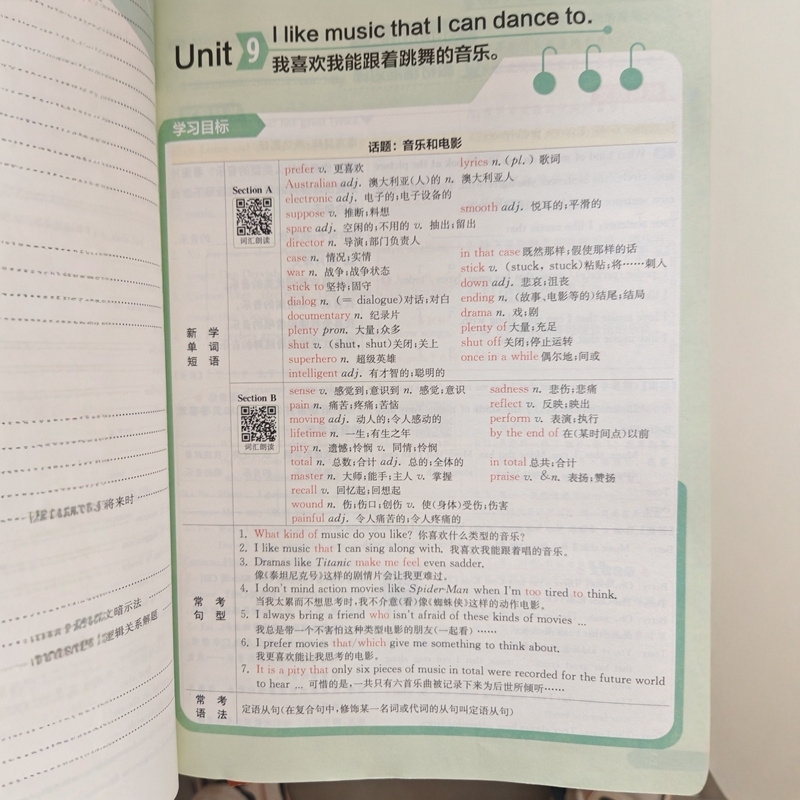 Unit 9
I like music that I can dance to.
我喜欢我能跟着跳舞的音乐。
学习目标
话题：音乐和电影
新学单词短语
Section A
词汇朗读
prefer v. 更喜欢
lyrics n.(pl.) 歌词
Australian adj. 澳大利亚(人)的 n. 澳大利亚人
electronic adj. 电子的;电子设备的
suppose v. 推断;料想
smooth adj. 悦耳的;平滑的
spare adj. 空闲的;不用的 v. 抽出;留出
director n. 导演;部门负责人
case n. 情况;实情
in that case 既然那样;假使那样的话
war n. 战争;战争状态
stick v. (stuck, stuck)粘贴;将……刺入
stick to 坚持;固守
down adj. 悲哀;沮丧
dialog n. (= dialogue)对话;对白
ending n. (故事、电影等的)结尾;结局
documentary n. 纪录片
drama n. 戏;剧
plenty pron. 大量;众多
plenty of 大量;充足
shut v. (shut, shut)关闭;关上
shut off 关闭;停止运转
superhero n. 超级英雄
once in a while 偶尔地;间或
intelligent adj. 有才智的;聪明的
Section B
词汇朗读
sense v. 感觉到;意识到 n. 感觉;意识
sadness n. 悲伤;悲痛
pain n. 痛苦;疼痛;苦恼
reflect v. 反映;映出
moving adj. 动人的;令人感动的
perform v. 表演;执行
lifetime n. 一生;有生之年
by the end of 在(某时间点)以前
pity n. 遗憾;怜悯 v. 同情;怜悯
total n. 总数;合计 adj. 总的;全体的
in total 总共;合计
master n. 大师;能手;主人 v. 掌握
praise v. &n. 表扬;赞扬
recall v. 回忆起;回想起
wound n. 伤;伤口;创伤 v. 使(身体)受伤;伤害
painful adj. 令人痛苦的;令人疼痛的
常考句型
1. What kind of music do you like? 你喜欢什么类型的音乐?
2. I like music that I can sing along with. 我喜欢我能跟着唱的音乐。
3. Dramas like Titanic make me feel even sadder.
像《泰坦尼克号》这样的剧情片会让我更难过。
4. I don't mind action movies like Spider-Man when I'm too tired to think.
当我太累而不想思考时,我不介意(看)像《蜘蛛侠》这样的动作电影。
5. I always bring a friend who isn't afraid of these kinds of movies …
我总是带一个不害怕这种类型电影的朋友(一起看)……
6. I prefer movies that/which give me something to think about.
我更喜欢能让我思考的电影。
7. It is a pity that only six pieces of music in total were recorded for the future world
to hear … 可惜的是,一共只有六首乐曲被记录下来为后世所倾听……
常考语法
定语从句(在复合句中,修饰某一名词或代词的从句叫定语从句)
将来时
暗示法
逻辑关系解题